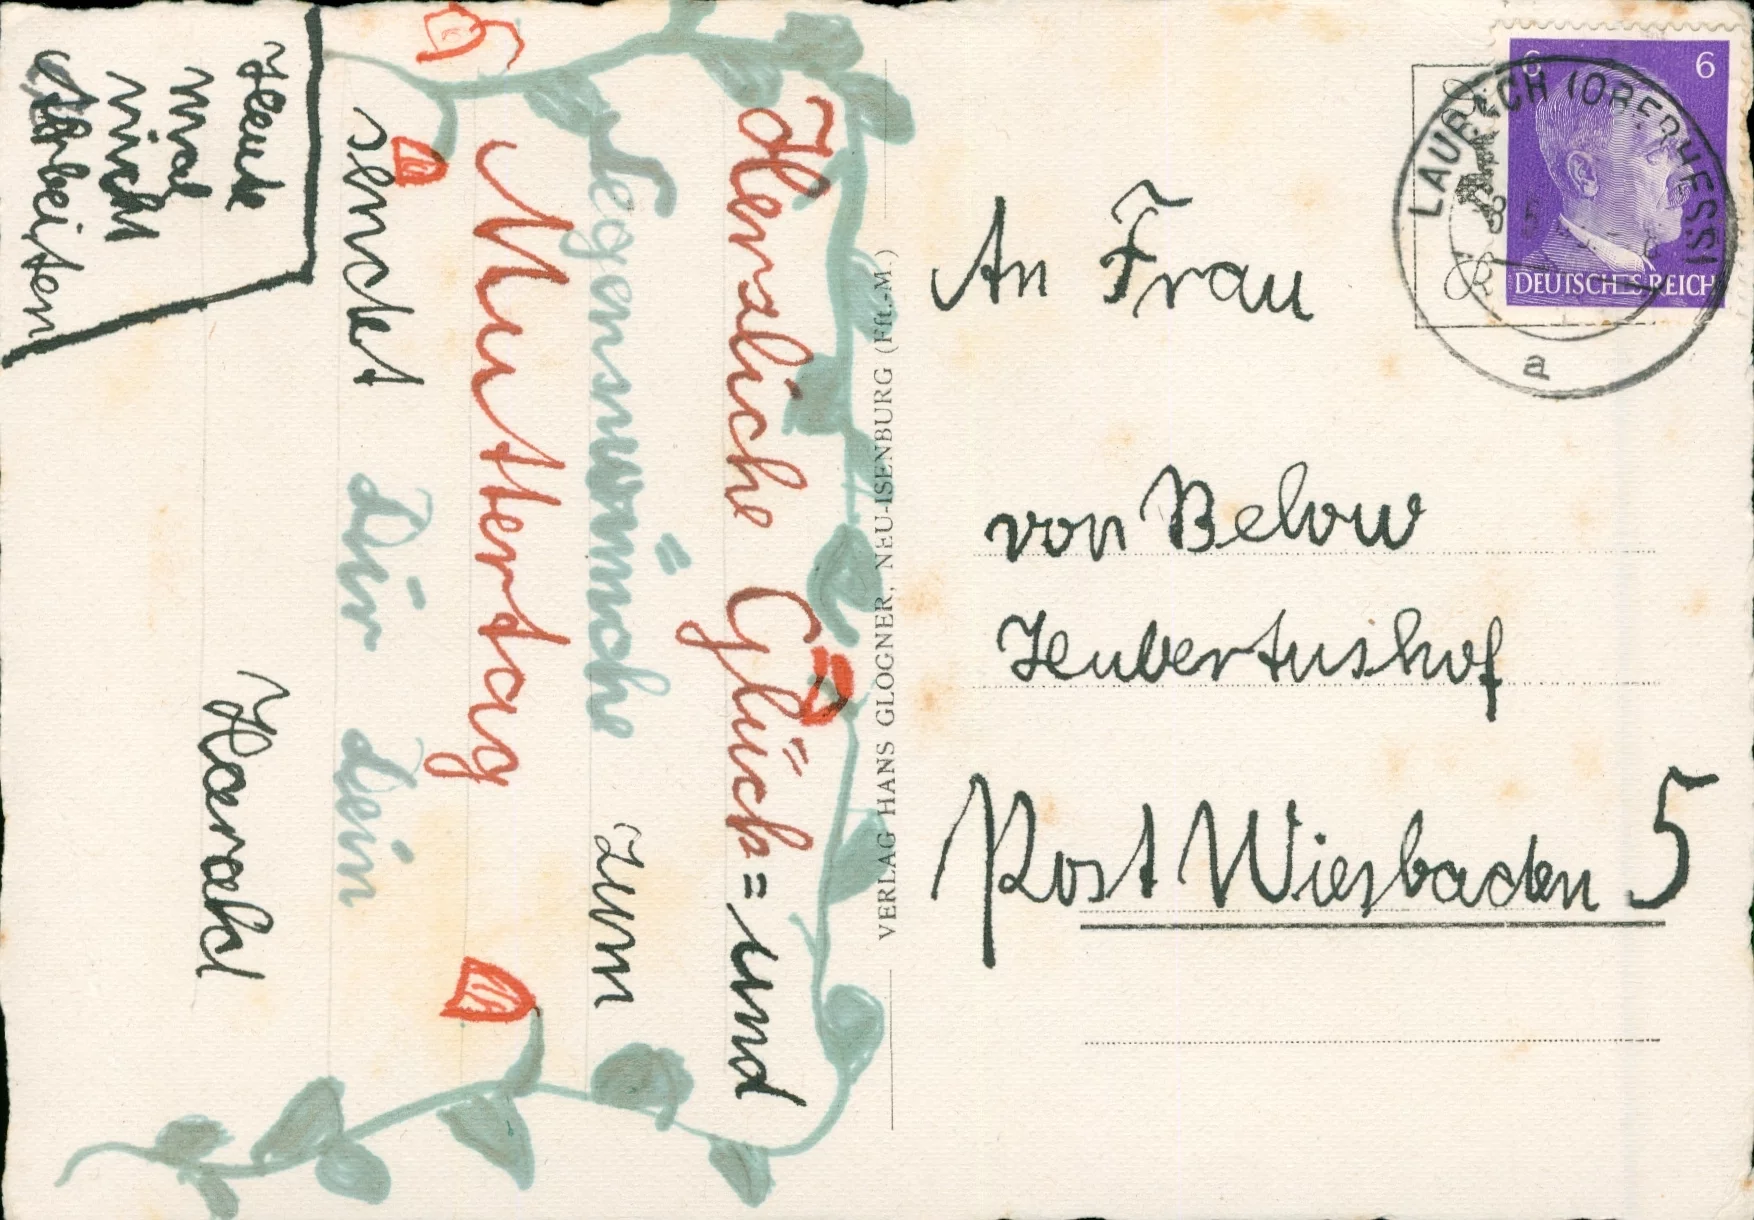 Herzliche Glück= und
Segenswünsche zum
Muttertag
sendet Dir Dein
Harald
Heute
mal
nicht
Arbeiten
VERLAG HANS GLOGNER, NEU-ISENBURG (Fft.-M.)
6 6
DEUTSCHES REICH
LAUBACH (OBERHESS)
a
An Frau
von Below
Hubertushof
Post Wiesbaden 5